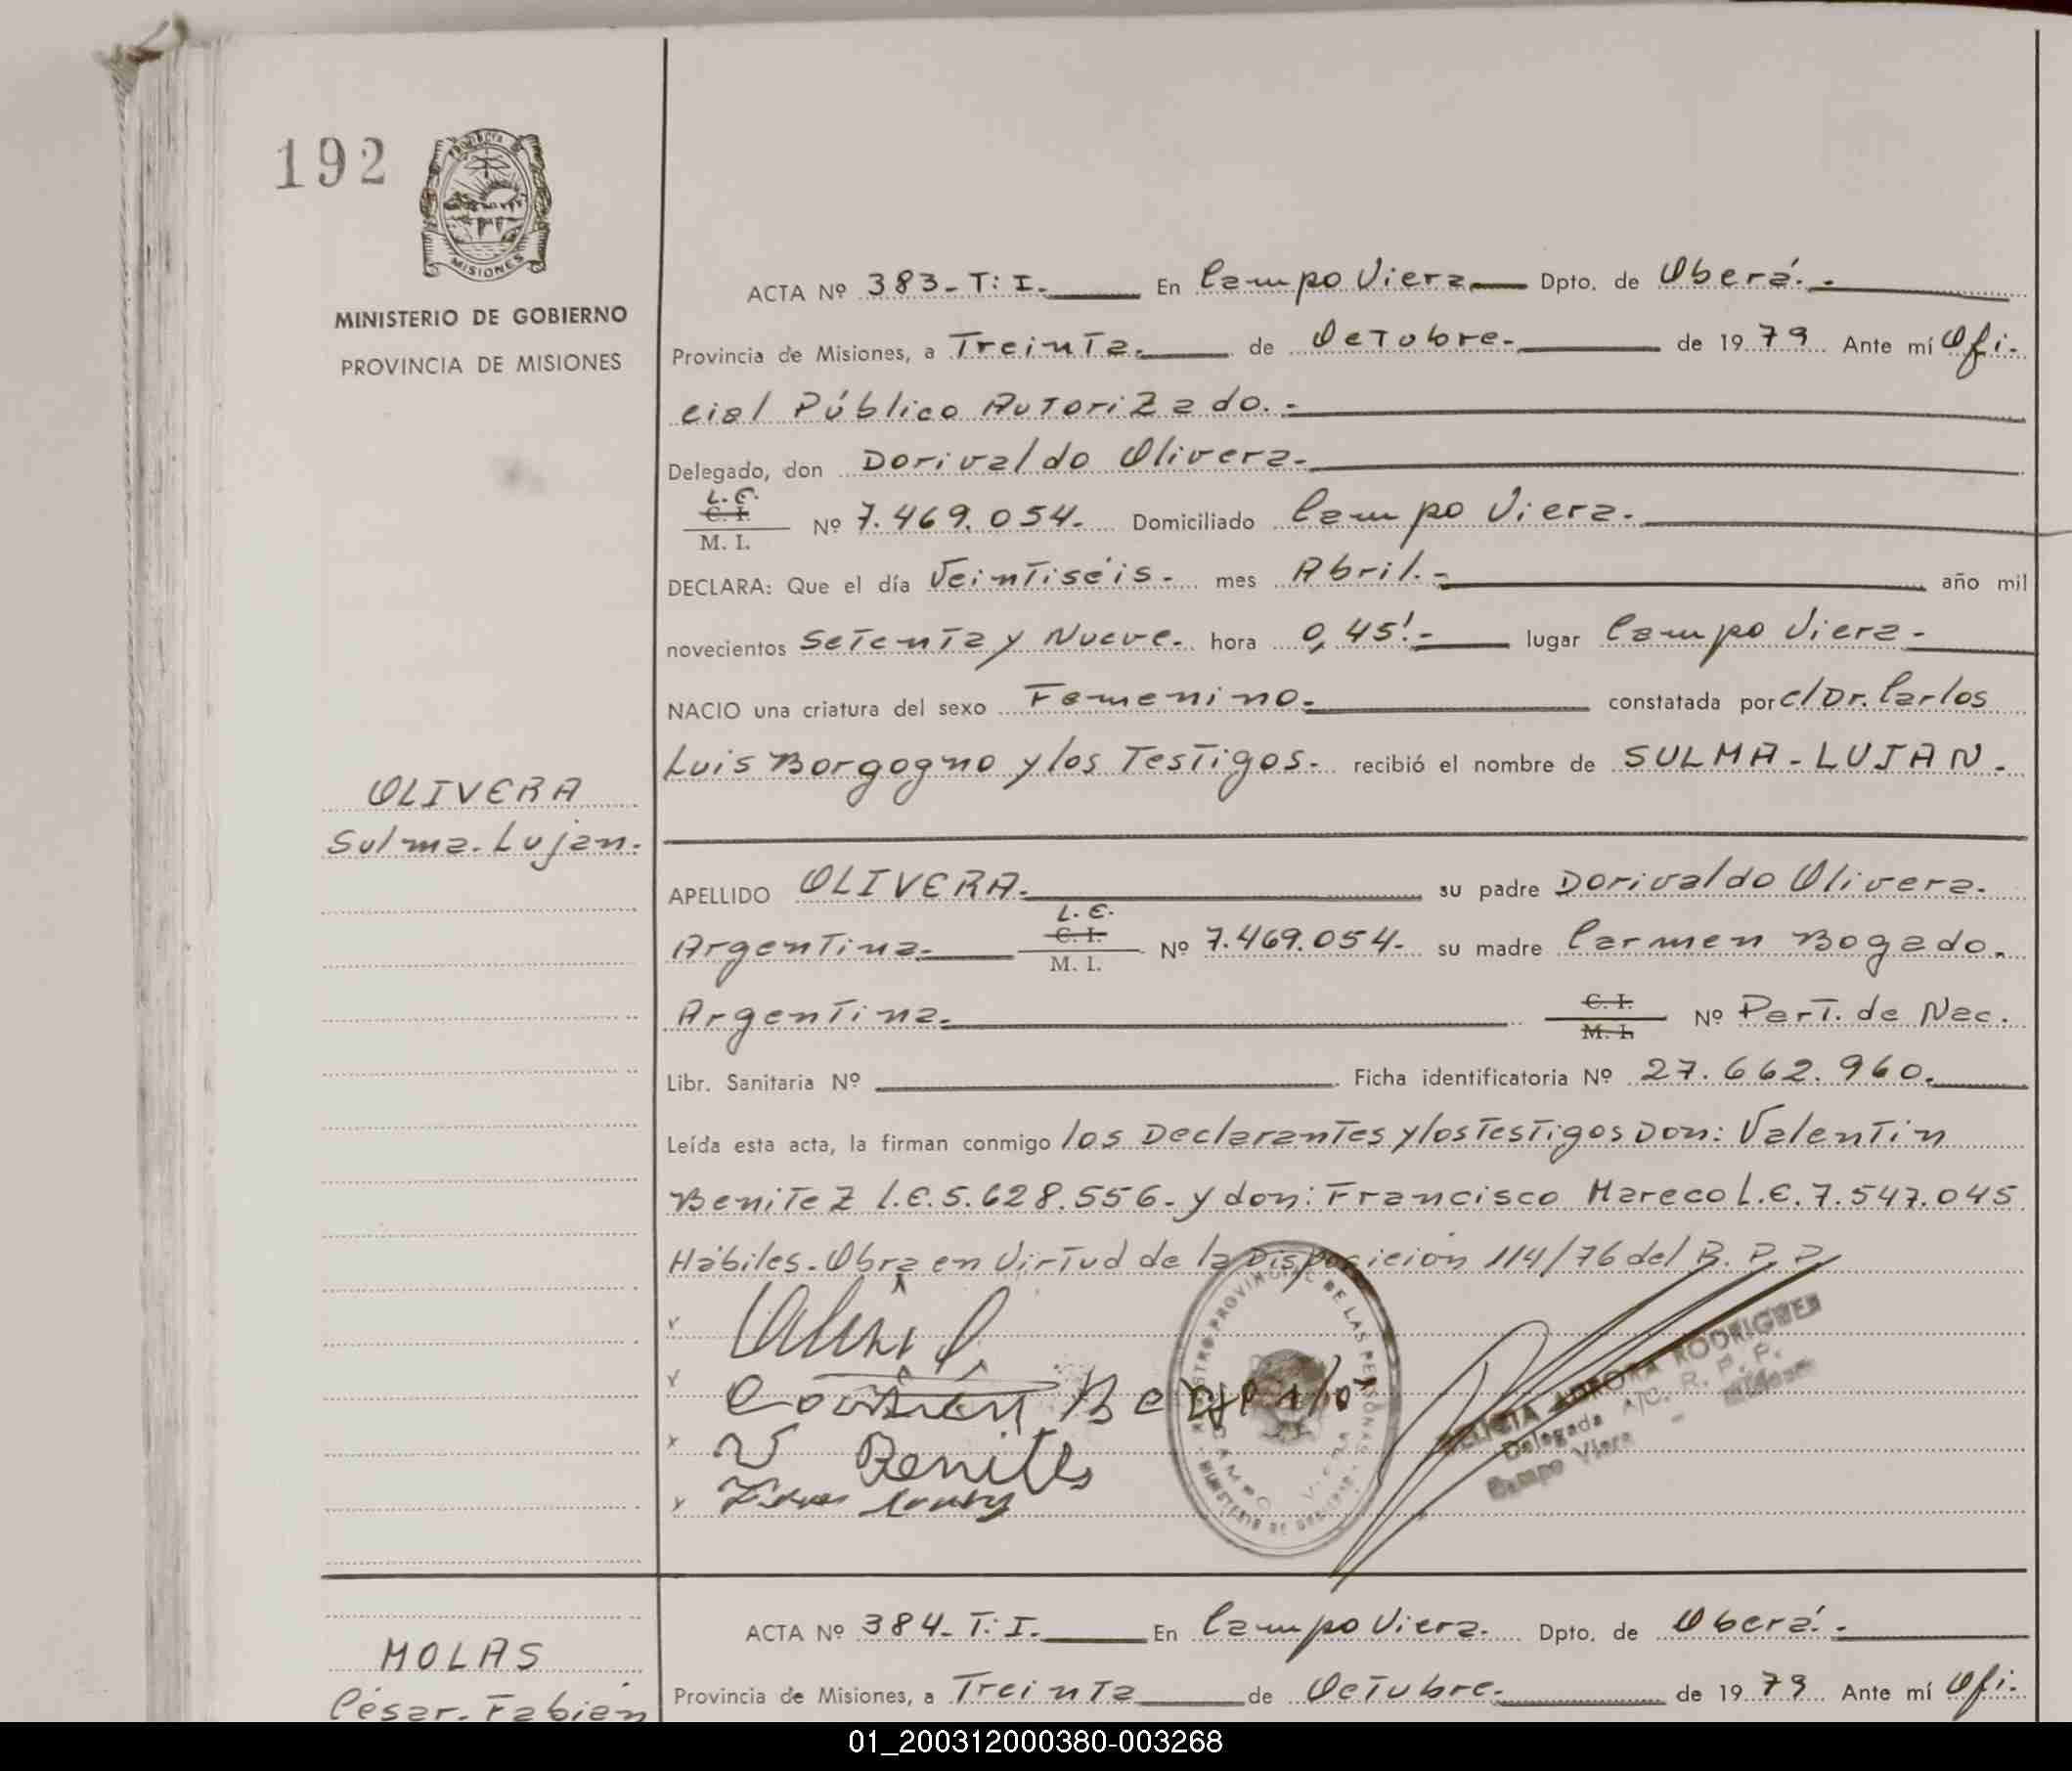 192
PROVINCIA DE MISIONES
MINISTERIO DE GOBIERNO
PROVINCIA DE MISIONES
OLIVERA
Sulma-Lujan.
ACTA Nº 383-T:I. En Campo Viera Dpto. de Oberá.-
Provincia de Misiones, a Treinta. de Octubre. de 1979 Ante mí Ofi-
cial Público Autorizado.-
Delegado, don Dorivaldo Olivera.
L.E.
C. I.
M. I.
Nº 7.469.054. Domiciliado Campo Viera.
DECLARA: Que el día Veintiséis. mes Abril.- año mil
novecientos Setenta y Nueve. hora 0,45!- lugar Campo Viera.
NACIO una criatura del sexo Femenino. constatada por c/Dr. Carlos
Luis Borgogno y los Testigos. recibió el nombre de SULMA-LUJAN.
APELLIDO OLIVERA. su padre Dorivaldo Olivera.
L.E.
Argentina. C. I. Nº 7.469.054. su madre Carmen Bogado.
M. I.
Argentina. C. I. Nº Part. de Nac.
M. I.
Libr. Sanitaria Nº Ficha identificatoria Nº 27.662.960.
Leída esta acta, la firman conmigo los Declarantes y los Testigos Don: Valentin
Benitez L.E.5.628.556. y don: Francisco Mareco L.E.7.547.045
Hábiles. Obra en Virtud de la Disposición 114/76 del R.P.P.
REGISTRO PROVINCIAL DE LAS PERSONAS
MINISTERIO DE GOBIERNO
CAMPO VIERA
V Benites
AURORA RODRIGUEZ
Delegada A/C. R. P. P.
Campo Viera - Misiones
MOLAS
César-Fabián
ACTA Nº 384-T:I. En Campo Viera. Dpto. de Oberá.-
Provincia de Misiones, a Treinta de Octubre. de 1979 Ante mí Ofi-
01_200312000380-003268